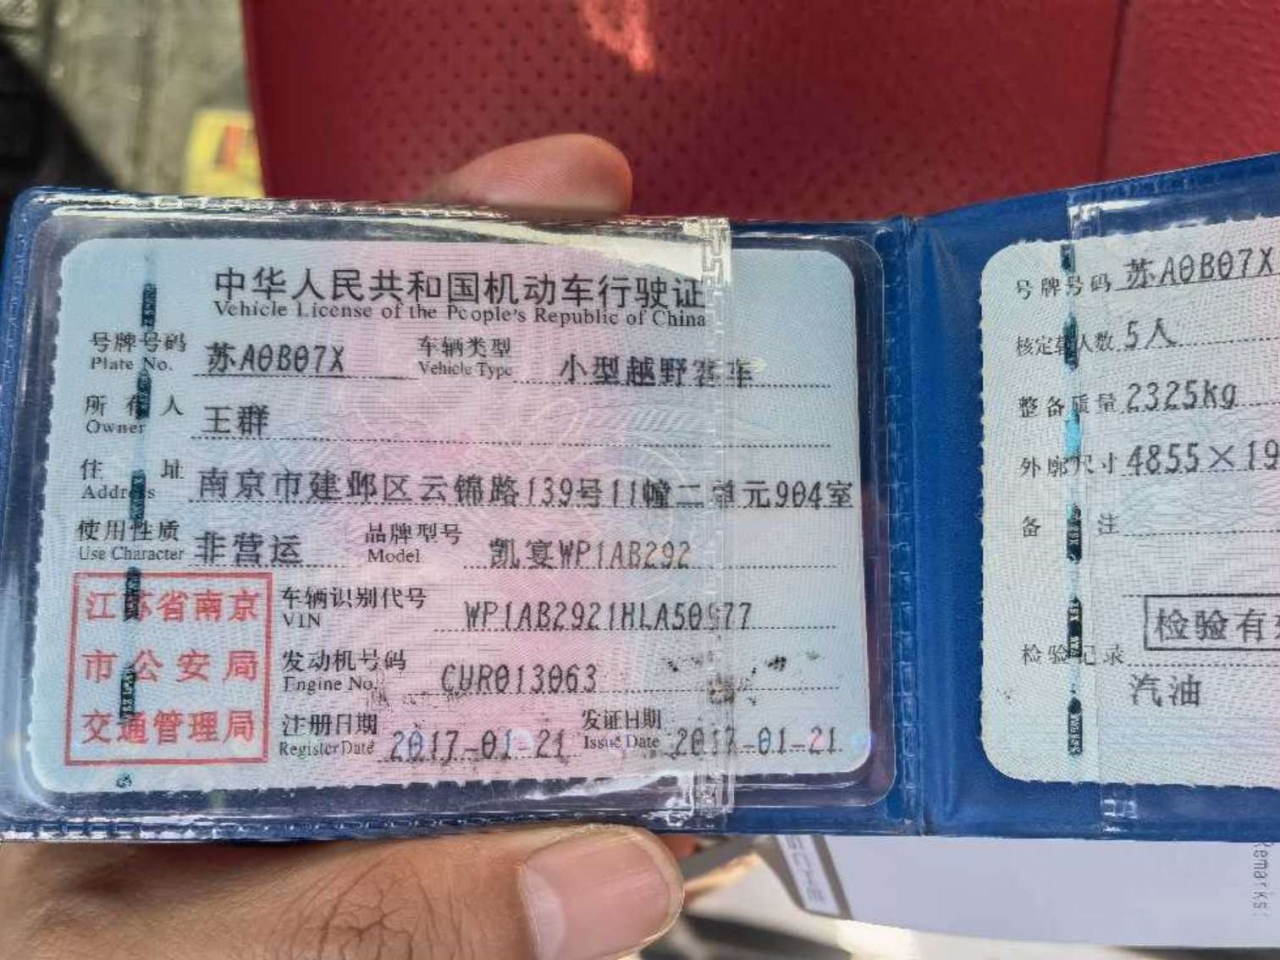 中华人民共和国机动车行驶证
Vehicle License of the People's Republic of China
号牌号码 苏A0B07X 车辆类型 小型越野客车
Plate No. Vehicle Type
所有人 王群
Owner
住址 南京市建邺区云锦路139号11幢二单元904室
Address
使用性质 非营运 品牌型号 凯宴WP1AB292
Use Character Model
江苏省南京
市公安局
交通管理局
车辆识别代号 WP1AB2921HLA50977
VIN
发动机号码 CUR013063
Engine No.
注册日期 2017-01-21 发证日期 2017-01-21
Register Date Issue Date
号牌号码 苏A0B07X
核定载人数 5人
整备质量 2325kg
外廓尺寸 4855×19
备注
检验有
检验记录
汽油
SCHE
Remarks: